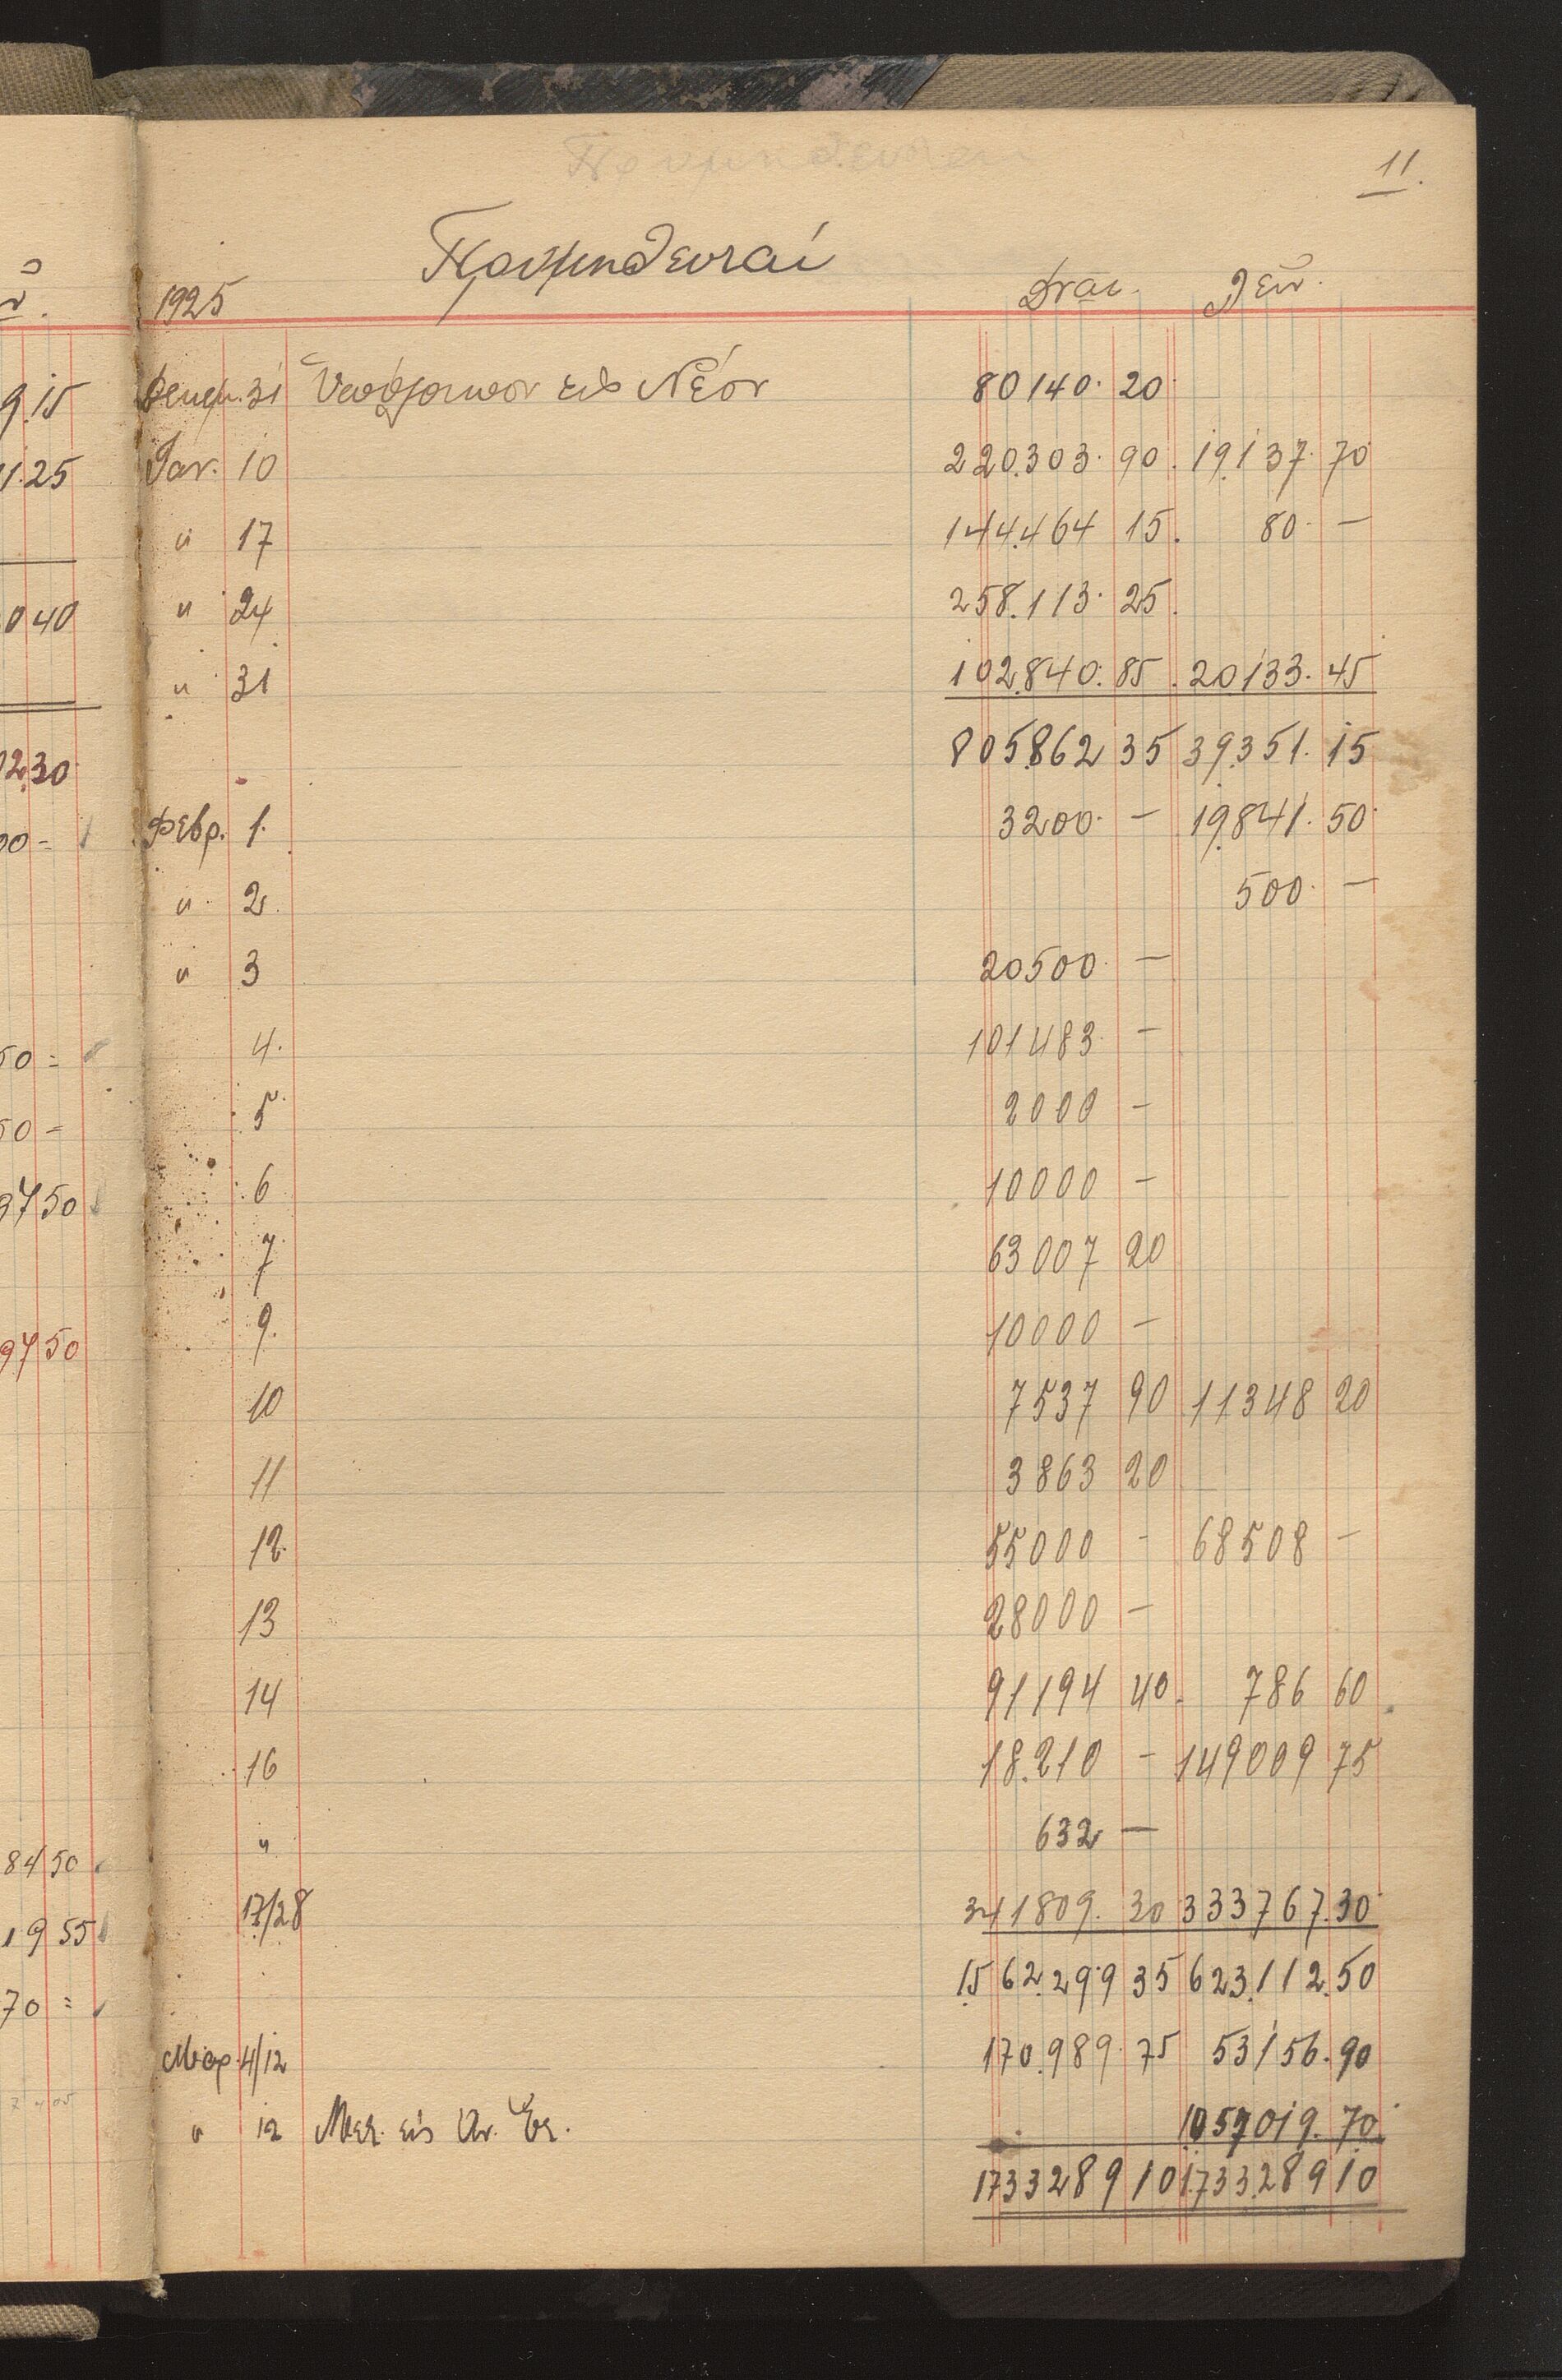 11.
Προμηθευταί
1925 Δοῦν. Λεῖν.
Δεκεμ. 31 Ὑπόλοιπον εἰς Νέον 80140. 20
Ιαν. 10 220.303. 90. 19.137. 70
" 17 144.464 15. 80. —
" 24 258.113. 25.
" 31 102.840. 85. 20133. 45
805862 35 39.351. 15
Φεβρ. 1. 3200. — 19.841. 50
" 2. 500. —
" 3 20500. —
4. 101483. —
5 2000 —
6 10000 —
7 63007 20
9. 10000 —
10 7537 90 11348 20
11 3863 20
12 55000 - 68508 —
13 28000 —
14 91194 40. 786 60
16 18.210 — 149009 75
" 632 —
17/28 341809. 30 333767.30
1562.299 35 623.112.50
Μαρ. 4/12 170.989. 75 53156.90
" 12 Μετ. εἰς Αν. Ἐτ. 1057019. 70
1733289 10 1.733.289 10
9.15
1.25
040
02.30
00 =
50 =
50 -
9750
9750
84 50
19 55
70 =